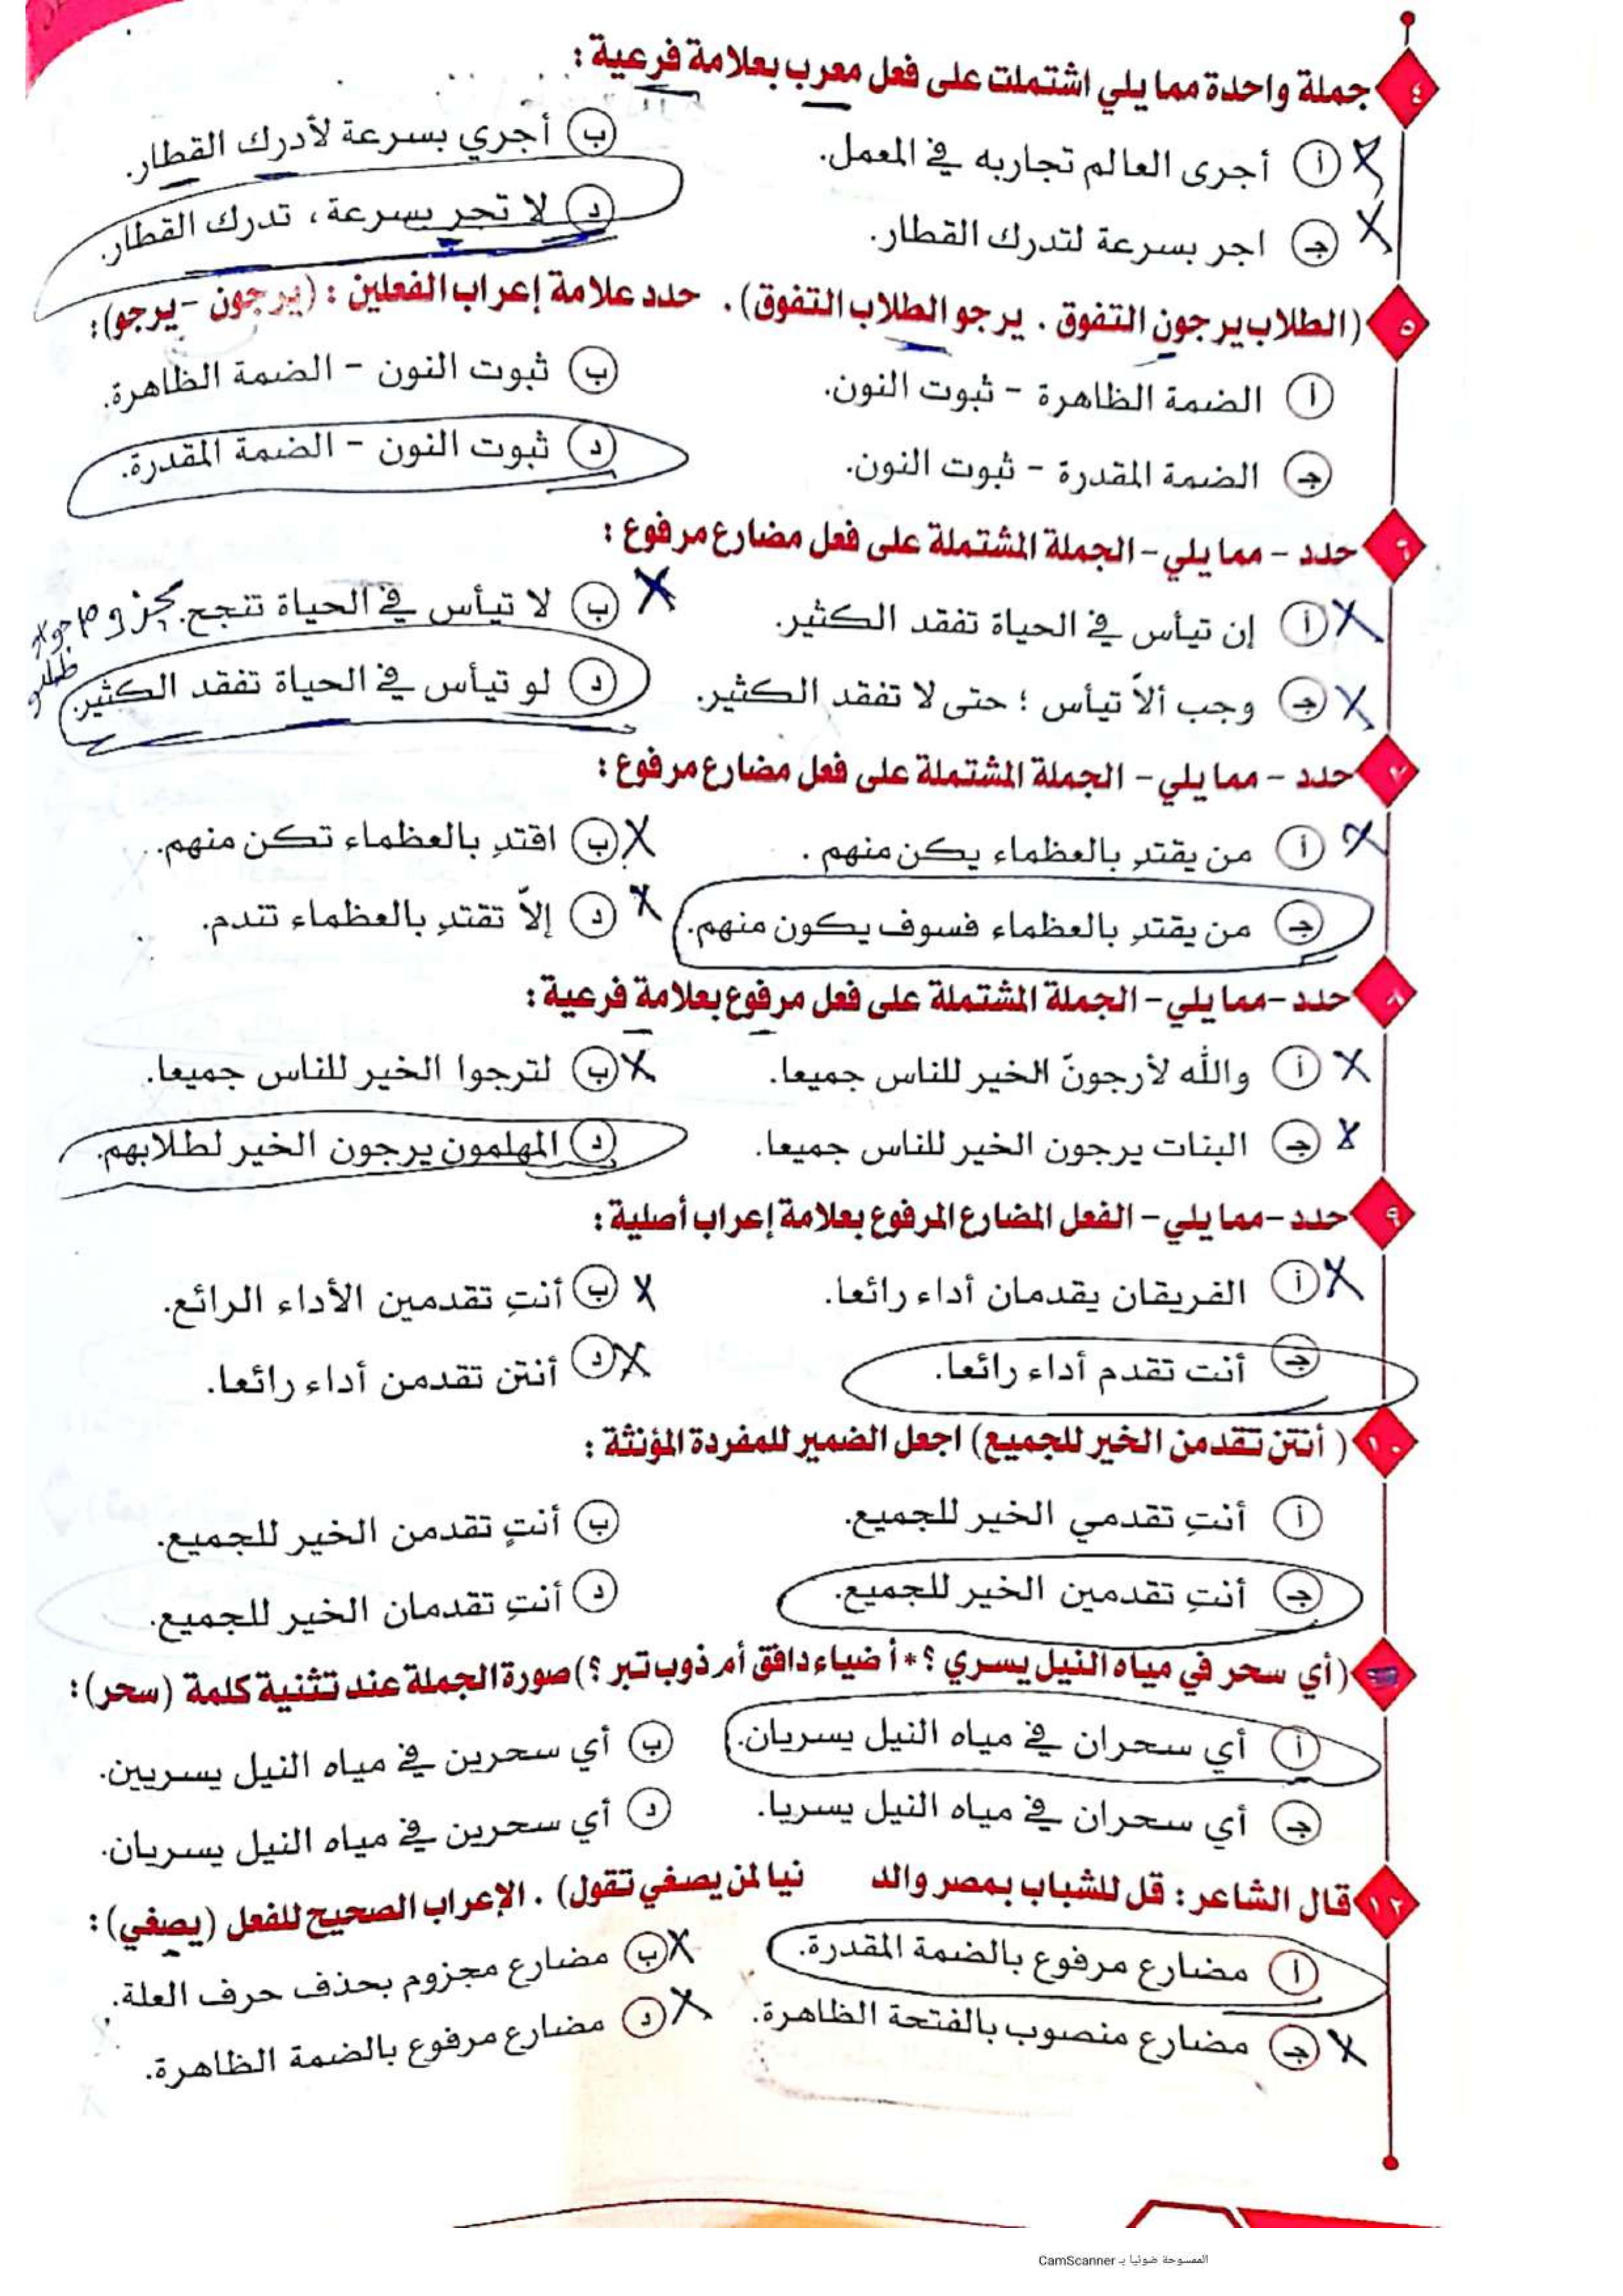 ٤ جملة واحدة مما يلي اشتملت على فعل معرب بعلامة فرعية :
أ أجرى العالم تجاربه في المعمل.
ب أجري بسرعة لأدرك القطار.
جـ اجر بسرعة لتدرك القطار.
د لا تجر بسرعة ، تدرك القطار.
٥ (الطلاب يرجون التفوق . يرجو الطلاب التفوق) . حدد علامة إعراب الفعلين : (يرجون - يرجو) :
أ الضمة الظاهرة - ثبوت النون.
ب ثبوت النون - الضمة الظاهرة.
جـ الضمة المقدرة - ثبوت النون.
د ثبوت النون - الضمة المقدرة.
٦ حدد - مما يلي - الجملة المشتملة على فعل مضارع مرفوع :
أ إن تيأس في الحياة تفقد الكثير.
ب لا تيأس في الحياة تنجح. مجزوم
جـ وجب ألاّ تيأس ؛ حتى لا تفقد الكثير.
د لو تيأس في الحياة تفقد الكثير.
٧ حدد - مما يلي - الجملة المشتملة على فعل مضارع مرفوع :
أ من يقتدِ بالعظماء يكن منهم .
ب اقتدِ بالعظماء تكن منهم.
جـ من يقتدِ بالعظماء فسوف يكون منهم.
د إلاّ تقتدِ بالعظماء تندم.
٨ حدد - مما يلي - الجملة المشتملة على فعل مرفوع بعلامة فرعية :
أ والله لأرجونّ الخير للناس جميعا.
ب لترجوا الخير للناس جميعا.
جـ البنات يرجون الخير للناس جميعا.
د المهلمون يرجون الخير لطلابهم.
٩ حدد - مما يلي - الفعل المضارع المرفوع بعلامة إعراب أصلية :
أ الفريقان يقدمان أداء رائعا.
ب أنتِ تقدمين الأداء الرائع.
جـ أنت تقدم أداء رائعا.
د أنتن تقدمن أداء رائعا.
١٠ ( أنتن تقدمن الخير للجميع) اجعل الضمير للمفردة المؤنثة :
أ أنتِ تقدمي الخير للجميع.
ب أنتِ تقدمن الخير للجميع.
جـ أنتِ تقدمين الخير للجميع.
د أنتِ تقدمان الخير للجميع.
(أي سحر في مياه النيل يسري ؟ * أ ضياء دافق أم ذوب تبر ؟) صورة الجملة عند تثنية كلمة (سحر) :
أ أي سحران في مياه النيل يسريان.
ب أي سحرين في مياه النيل يسريين.
جـ أي سحران في مياه النيل يسريا.
د أي سحرين في مياه النيل يسريان.
١٢ قال الشاعر : قل للشباب بمصر والد نيا لمن يصغي تقول) . الإعراب الصحيح للفعل (يصغي) :
أ مضارع مرفوع بالضمة المقدرة.
ب مضارع مجزوم بحذف حرف العلة.
جـ مضارع منصوب بالفتحة الظاهرة.
د مضارع مرفوع بالضمة الظاهرة.
الممسوحة ضوئيا بـ CamScanner